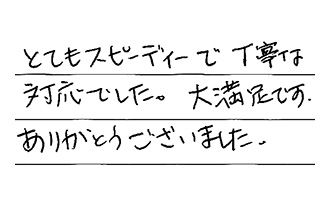 とてもスピーディーで丁寧な
対応でした。大満足です.
ありがとうございました.